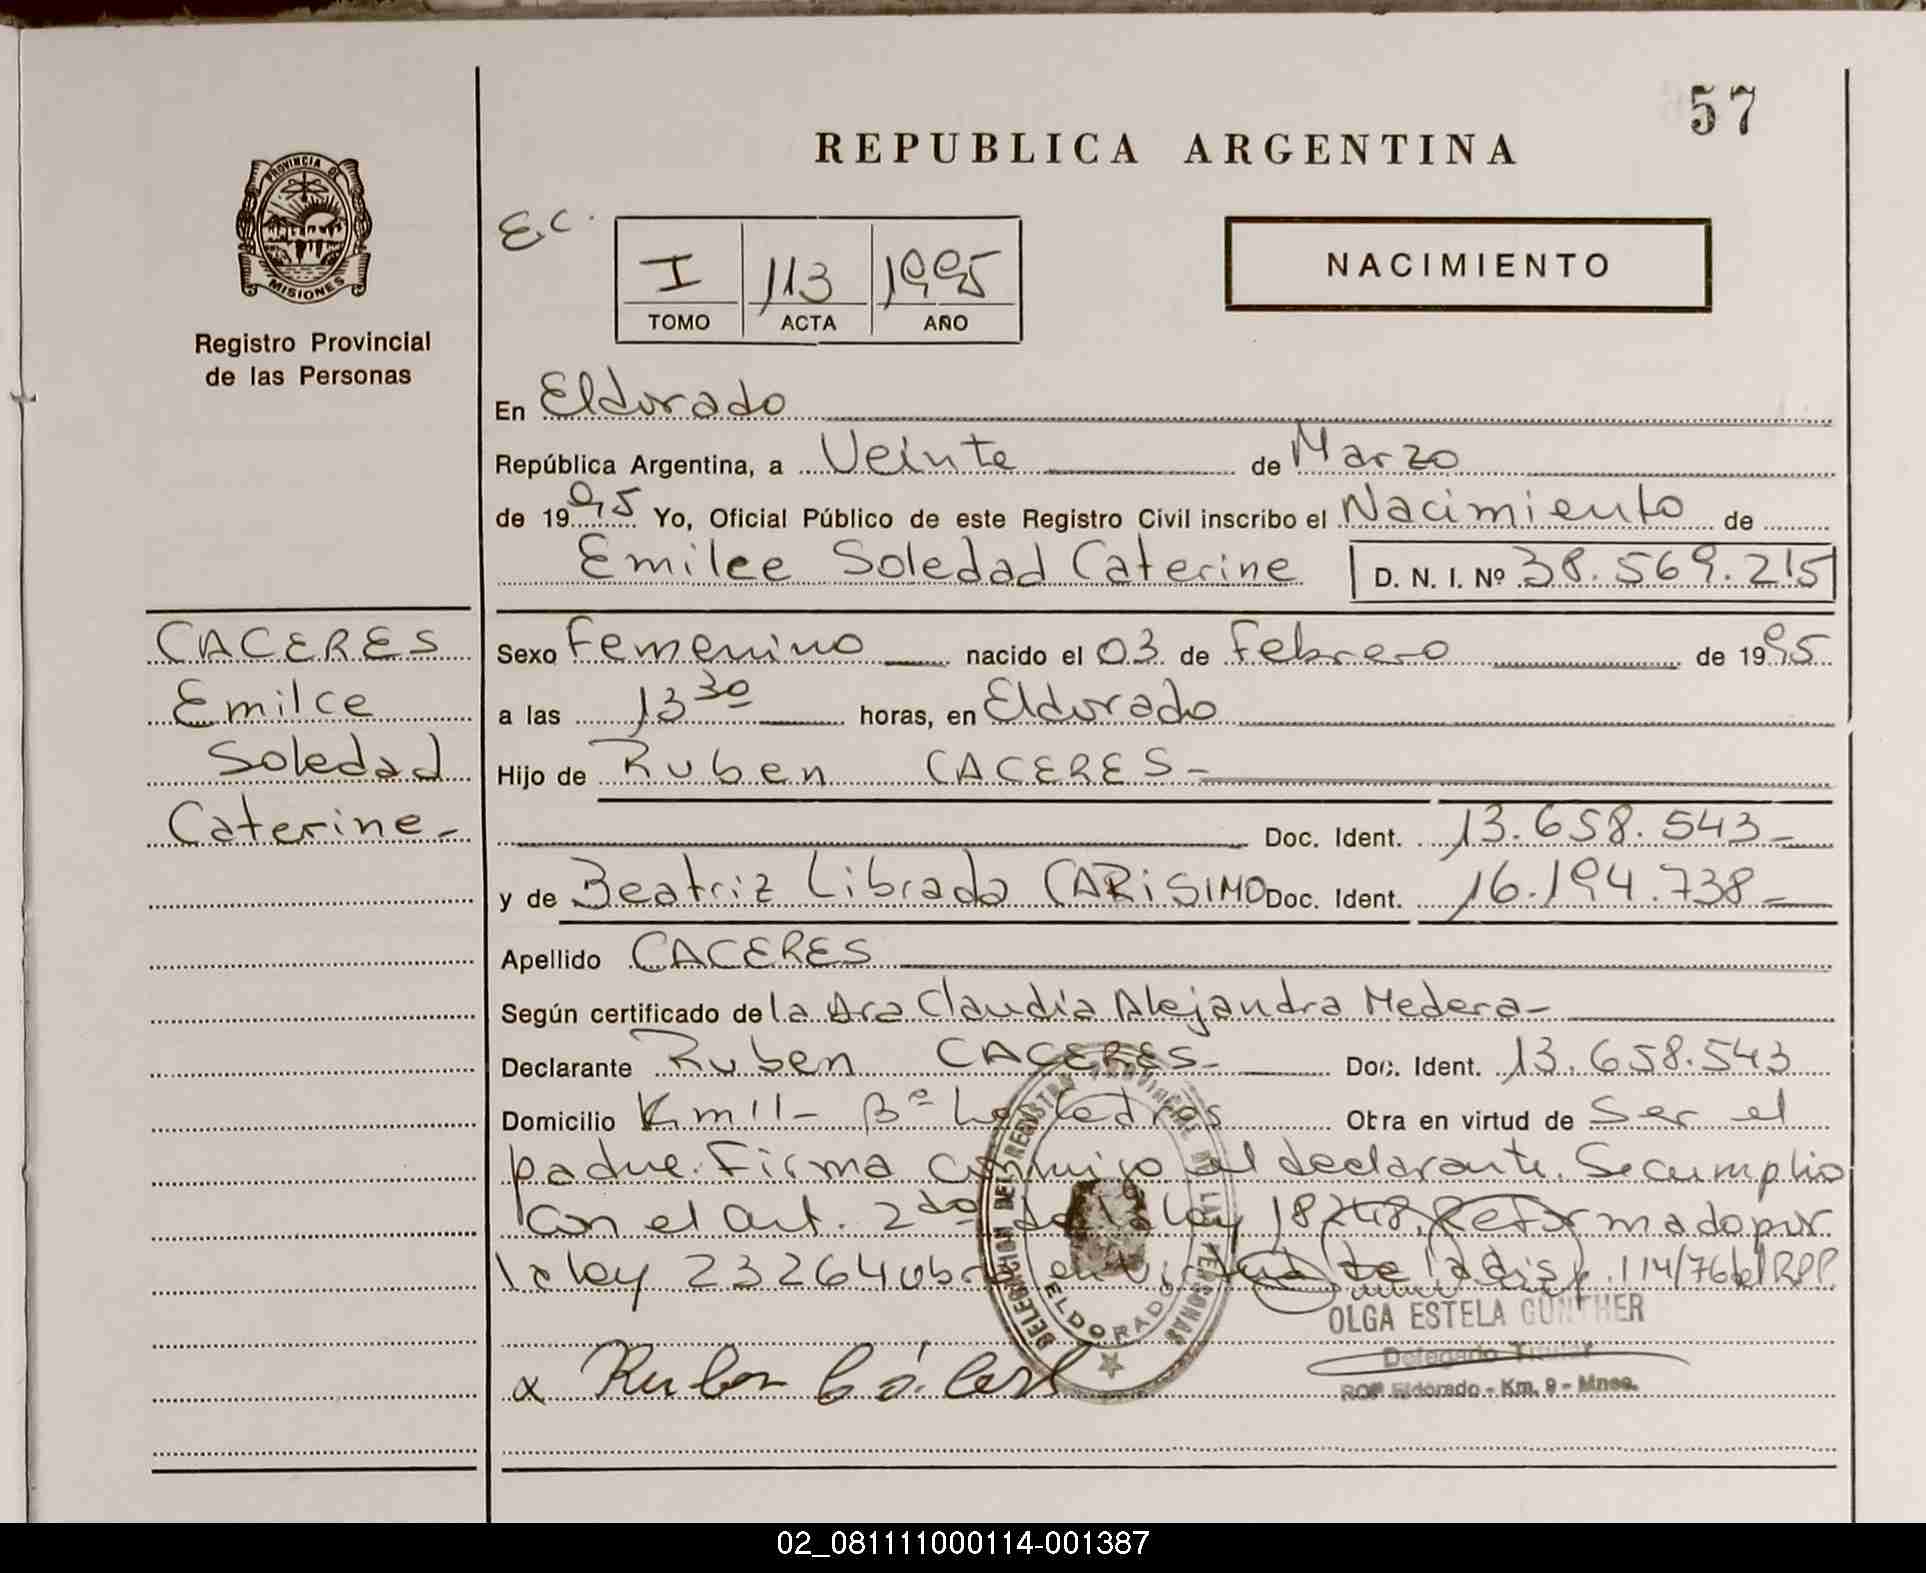 57
REPUBLICA ARGENTINA
PROVINCIA DE
MISIONES
Registro Provincial
de las Personas
E.C.
I 113 1995
TOMO ACTA AÑO
NACIMIENTO
En Eldorado
República Argentina, a Veinte de Marzo
de 1995 Yo, Oficial Público de este Registro Civil inscribo el Nacimiento de
Emilce Soledad Caterine D. N. I. Nº 38.569.215
CACERES
Emilce
Soledad
Caterine-
Sexo Femenino nacido el 03 de Febrero de 1995
a las 13 30 horas, en Eldorado
Hijo de Ruben CACERES-
Doc. Ident. 13.658.543-
y de Beatriz Librada CARISIMO Doc. Ident. 16.194.738-
Apellido CACERES
Según certificado de la Dra Claudia Alejandra Medera-
Declarante Ruben CACERES- Doc. Ident. 13.658.543
Domicilio Km 11- Bº Los Cedros Obra en virtud de Ser el
padre. Firma conmigo el declarante. Se cumplio
con el art. 2do de la ley 18248, Reformado por
la ley 23264 obra en virtud de la disp. 114/76 del RPP
DELEGACION DEL REGISTRO PROVINCIAL DE LAS PERSONAS
ELDORADO
OLGA ESTELA GUNTHER
Delegado Titular
Eldorado - Km. 9 - Mnes.
x Ruben Cáceres
02_081111000114-001387